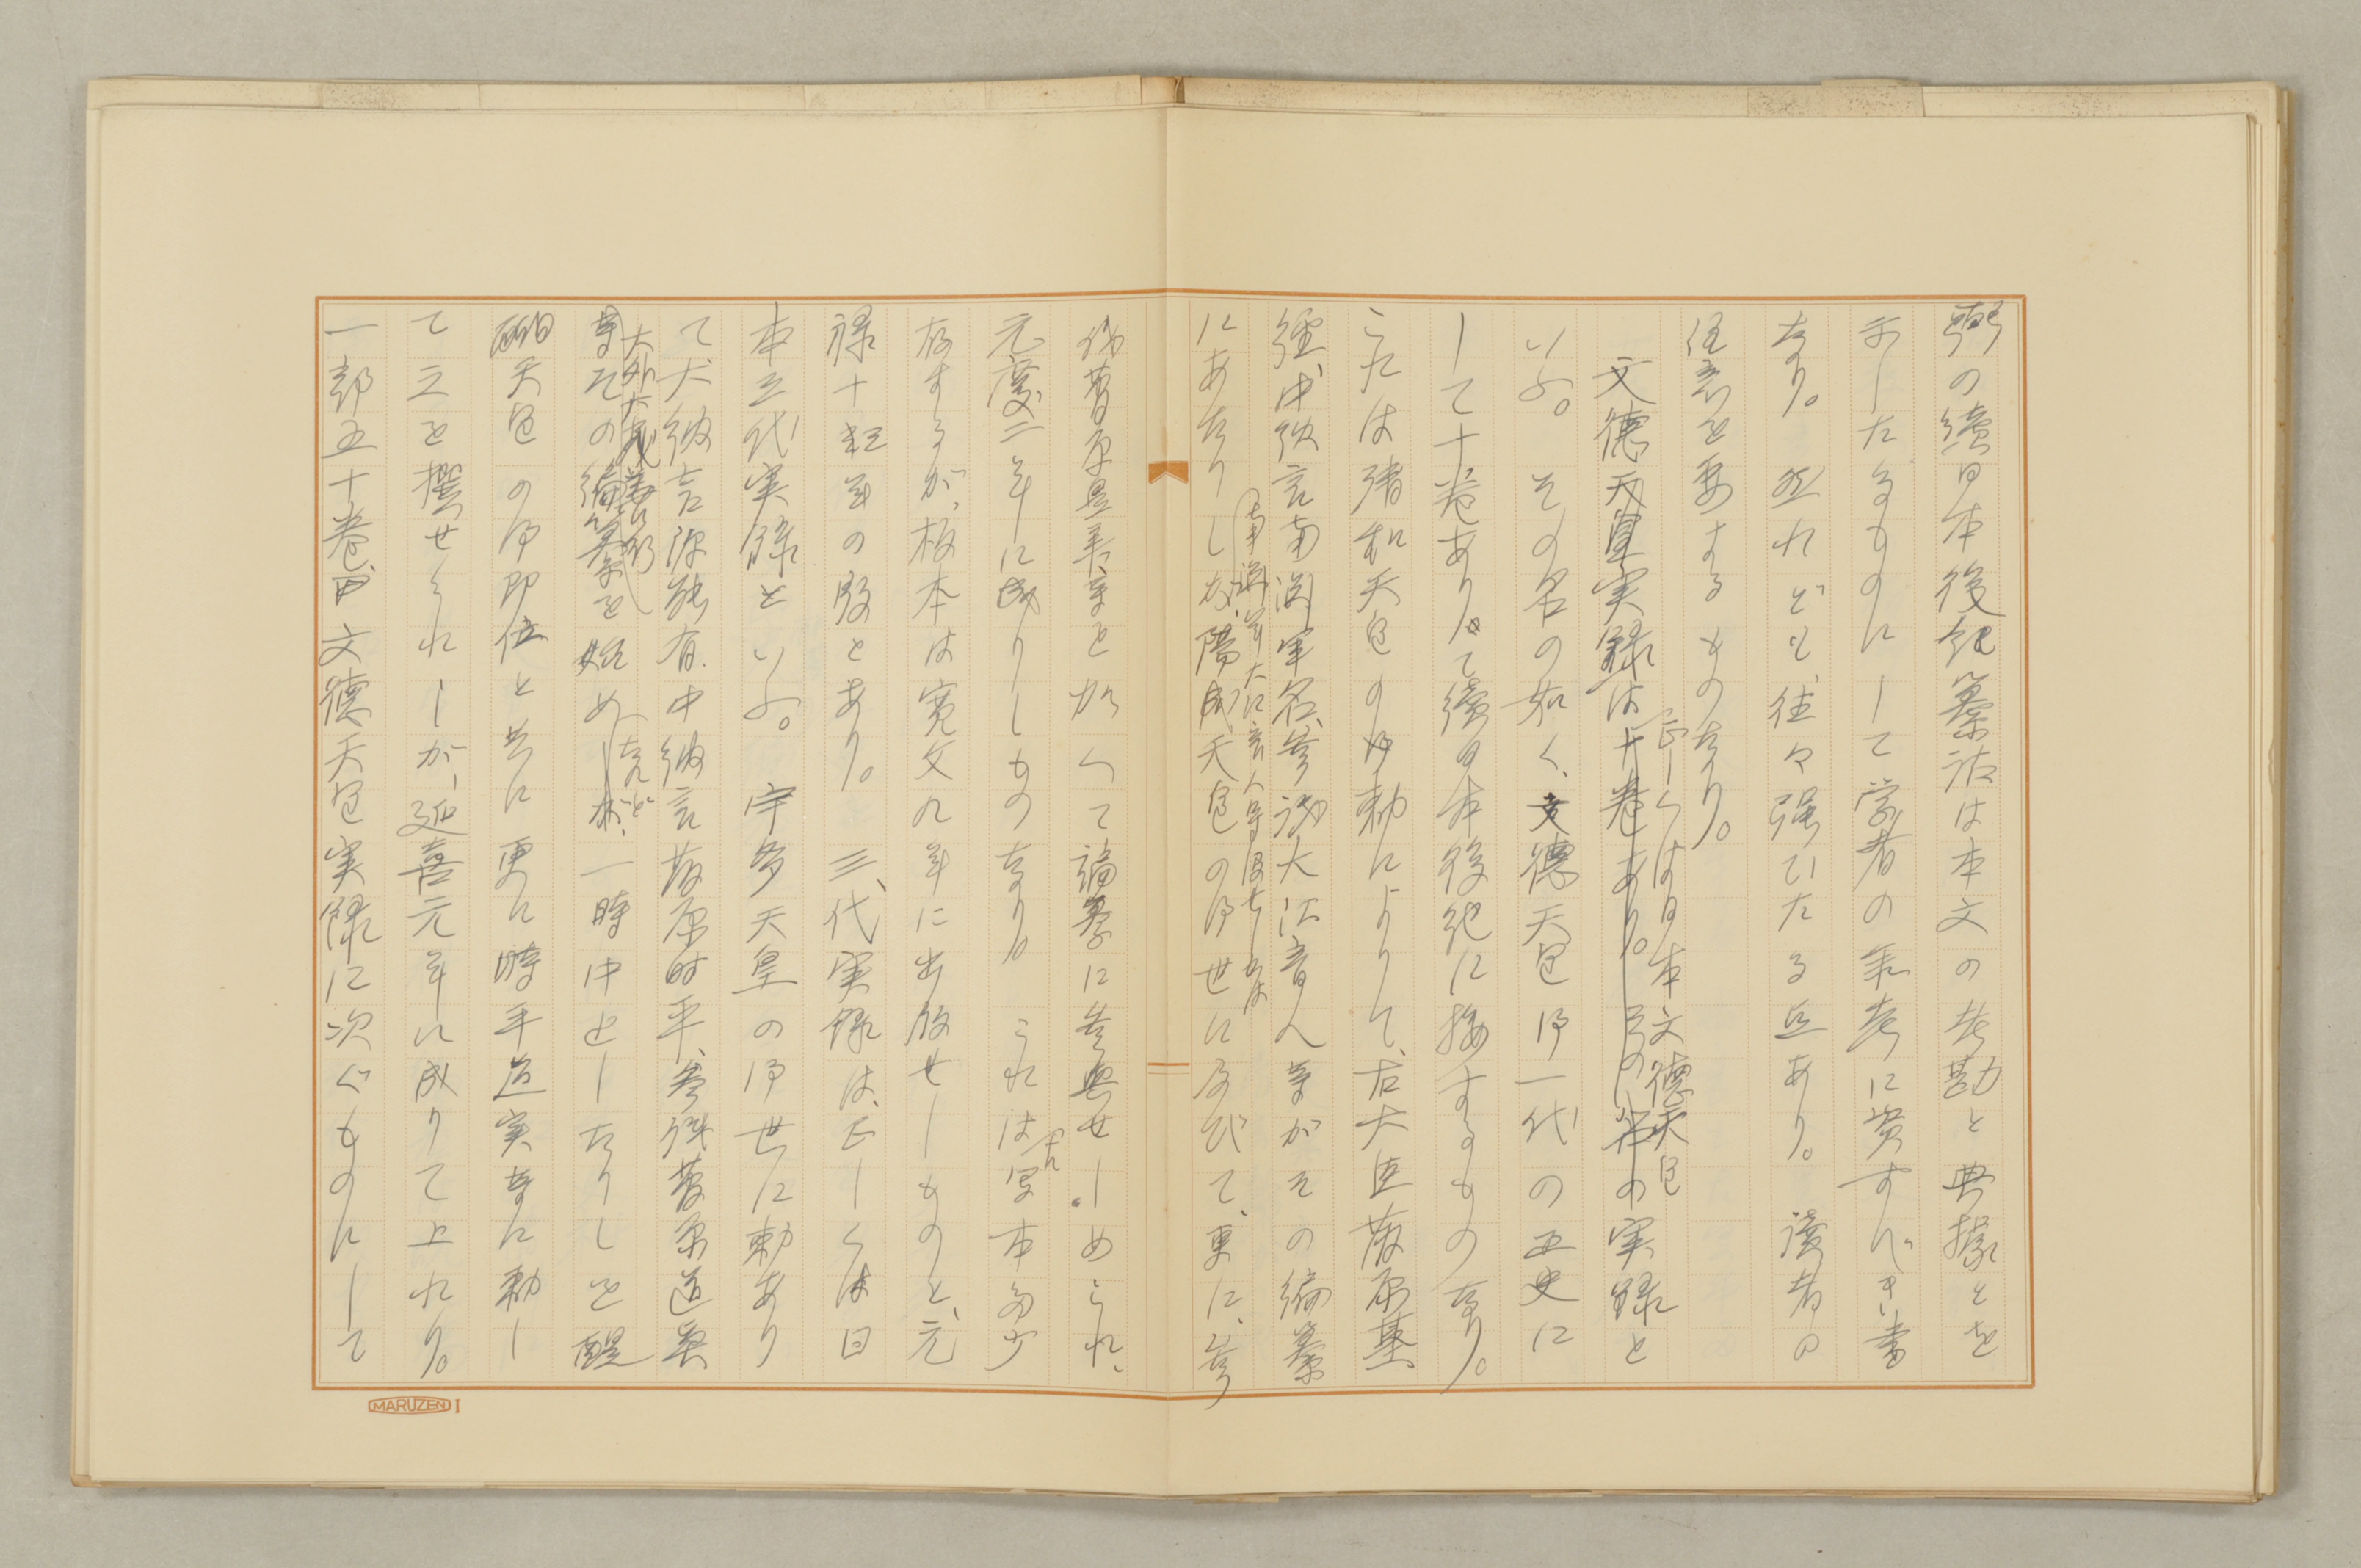 の續日本後紀纂詁は本文の考勘と典據とを
示したるものにして学者の参考に資すべき書
なり。然れども、往々强ひたる所あり。讀者の
注意を要するものなり。
文德天皇実録は十巻あり。
正しくは日本文德天皇
実録と
いふ。その名の如く、文德天皇御一代の正史に
して十巻あり。て續日本後紀に接するものなり。
こたは清和天皇の御勅によりて、右大臣藤原基
經、中納言南淵年名、参議大江音人等がその編纂
にあたりしが、陽成天皇の御世に及びて、更に、参
南淵年名大江音人等
議菅原是善を加へて編纂に参与せしめられ、
元慶二年に成りしものなり。これは写本多少
存するが、板本は寛文九年に出版せしものと、元
禄十
年の版とあり。三代実録は、正しくは日
本三代実録といふ。宇多天皇の御世に勅あり
て大納言源能有、中納言藤原時平、参議菅原道真
大外
等その編纂を始めしが、一時中止したりしを醍
なれど
醐天皇の御即位と共に更に時平道実等に勅し
て之を撰せられしが、延喜元年に成りて上れり。
一部五十巻、文德天皇実録に次ぐものにして
MARUZEN I